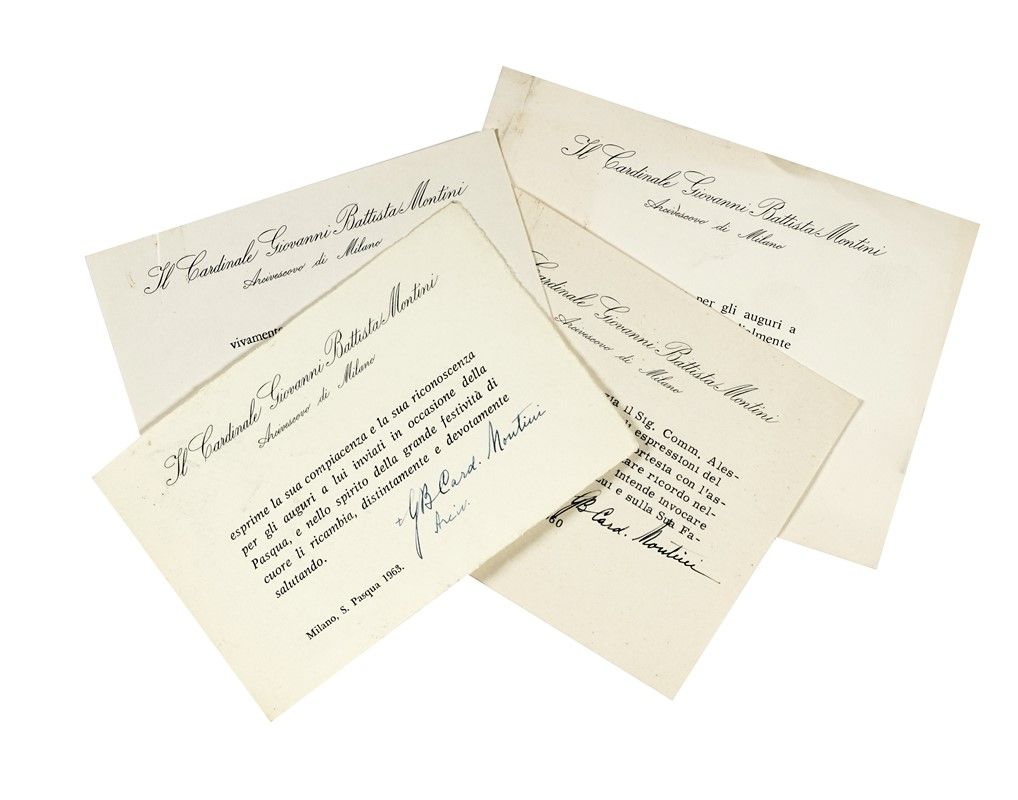 Il Cardinale Giovanni Battista Montini
Arcivescovo di Milano
vivamente
Il Cardinale Giovanni Battista Montini
Arcivescovo di Milano
per gli auguri a
Il Cardinale Giovanni Battista Montini
Arcivescovo di Milano
esprime la sua compiacenza e la sua riconoscenza
per gli auguri a lui inviati in occasione della
Pasqua, e nello spirito della grande festività di
cuore li ricambia, distintamente e devotamente
salutando.
+ GB Card. Montini
Arciv.
Milano, S. Pasqua 1963.
Cardinale Giovanni Battista Montini
Arcivescovo di Milano
il Sig. Comm. Ales-
espressioni del
ortesia con l'as-
are ricordo nel-
intende invocare
lui e sulla Sua Fa-
GB Card. Montini
60